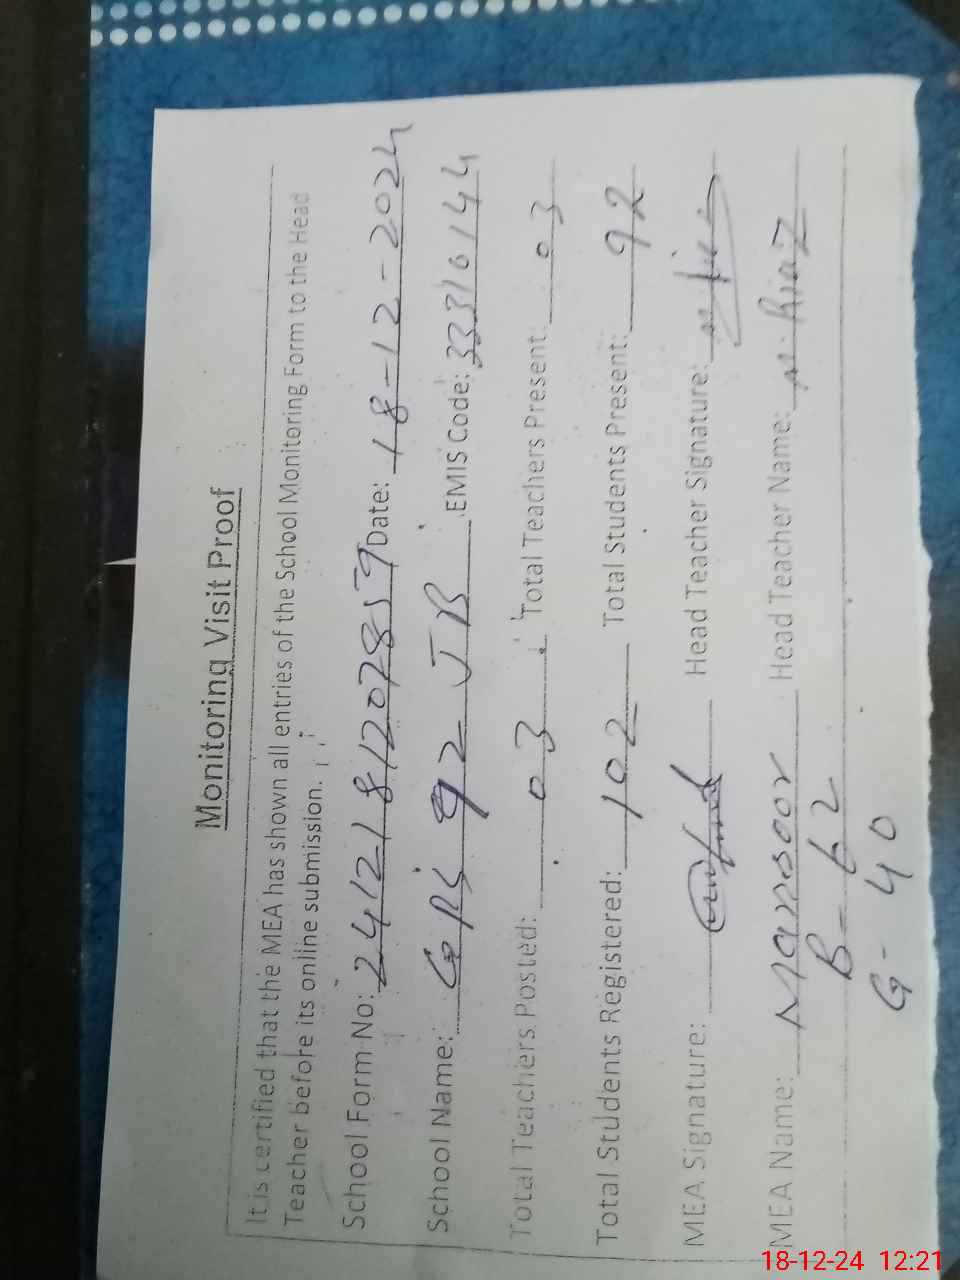 Monitoring Visit Proof
It is certified that the MEA has shown all entries of the School Monitoring Form to the Head
Teacher before its online submission.
School Form No: 24121812078559 Date: 18-12-2024
School Name: GPS 92 JB EMIS Code: 33310144
Total Teachers Posted: 03 Total Teachers Present: 03
Total Students Registered: 102 Total Students Present: 92
MEA Signature: Head Teacher Signature:
MEA Name: Mansoor Head Teacher Name: M. Riaz
B - 62
G - 40
18-12-24 12:21